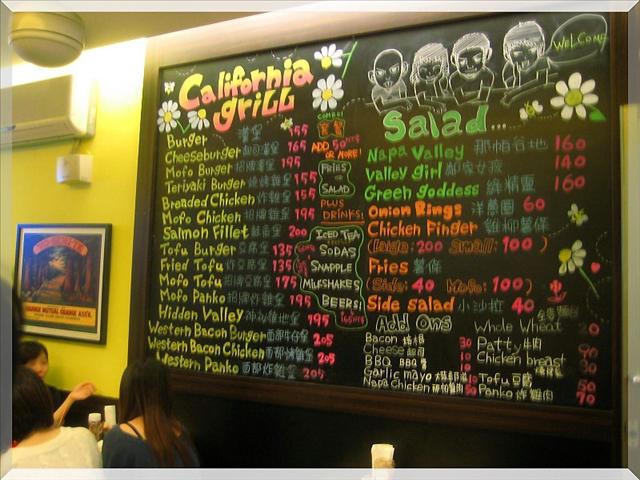 California
grill
Burger 漢堡 155
Cheeseburger 165
Mofo Burger 招牌漢堡 195
Teriyaki Burger 燒烤雞堡 155
Breaded Chicken 炸雞堡 155
Mofo Chicken 招牌雞堡 195
Salmon Fillet 200
Tofu Burger 豆腐堡 135
Fried Tofu 炸豆腐堡 135
Mofo Tofu 175
Mofo Panko 招牌炸雞堡 195
Hidden Valley 195
Western Bacon Burger 西部牛仔堡 205
Western Bacon Chicken 西部烤雞堡 205
Western Panko 西部炸雞堡 205
COMBO!
套餐
ADD 50
OR MORE!
FRIES
or
SALAD
PLUS
DRINKS:
ICED TEA
SODAS
SNAPPLE
MILKSHAKES
BEERS!
WELCOME
Salad...
Napa Valley 那帕谷地 160
Valley girl 鄰家女孩 140
Green goddess 綠精靈 160
Onion Rings 洋蔥圈 60
Chicken Finger 雞柳薯條
(Large: 200 Small: 100)
Fries 薯條
(Side: 40 Mofo: 100)
Side salad 小沙拉 40
Add Ons
Bacon 培根 30
Cheese 起司 10
BBQ 10
Garlic mayo 10
Napa Chicken
Whole Wheat 20
Patty 牛肉 90
Chicken breast
Tofu 豆腐 50
Panko 炸雞肉 70